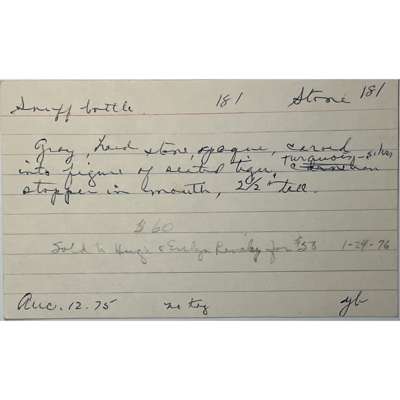 Snuff bottle 181 Stone 181
Gray, hard stone, opaque, carved
into figure of seated tiger, turquoise-silver
stopper in mouth, 2 1/2" tall.
$60
Sold to Hugh & Evelyn for $53 1-29-76
Aug. 12. 75